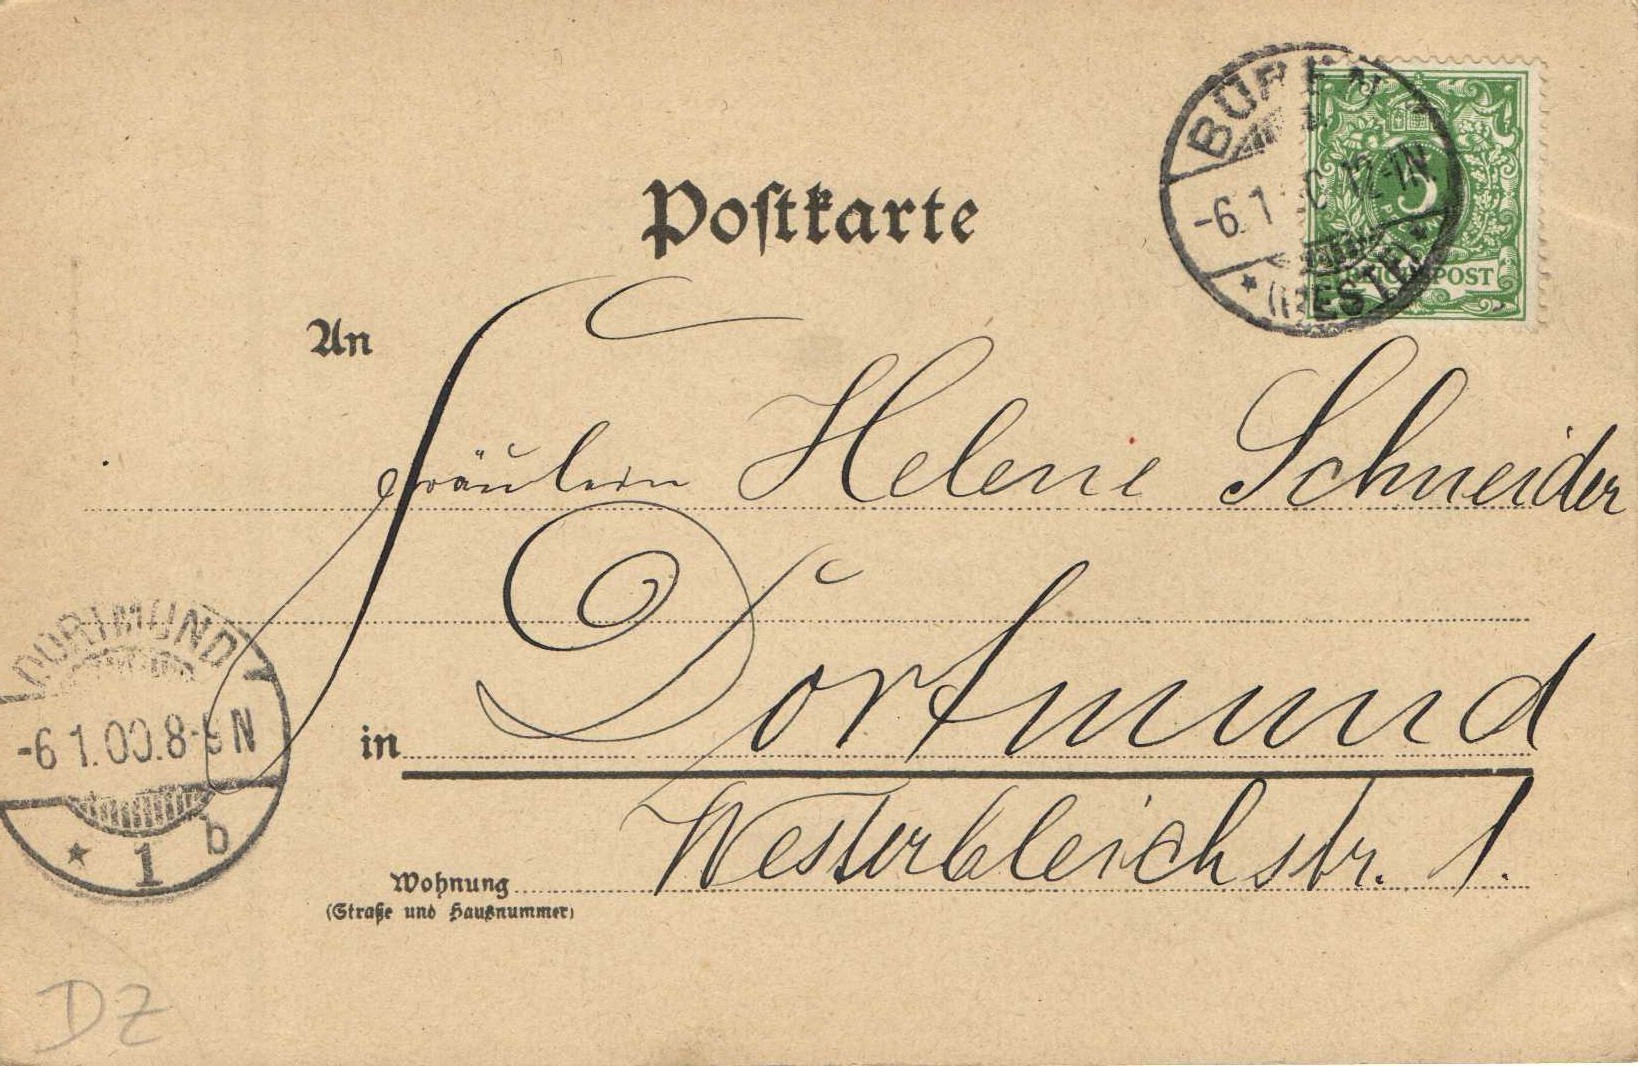 BÜREN
-6.1 12-1N.
* (WESTF) *
5
REICHSPOST
Postkarte
An
Fräulein Helene Schneider
DORTMUND
-6 1.00.8-9 N
* 1 b
in Dortmund
Westerbleichstr. 1.
Wohnung
(Straße und Hausnummer)
DZ